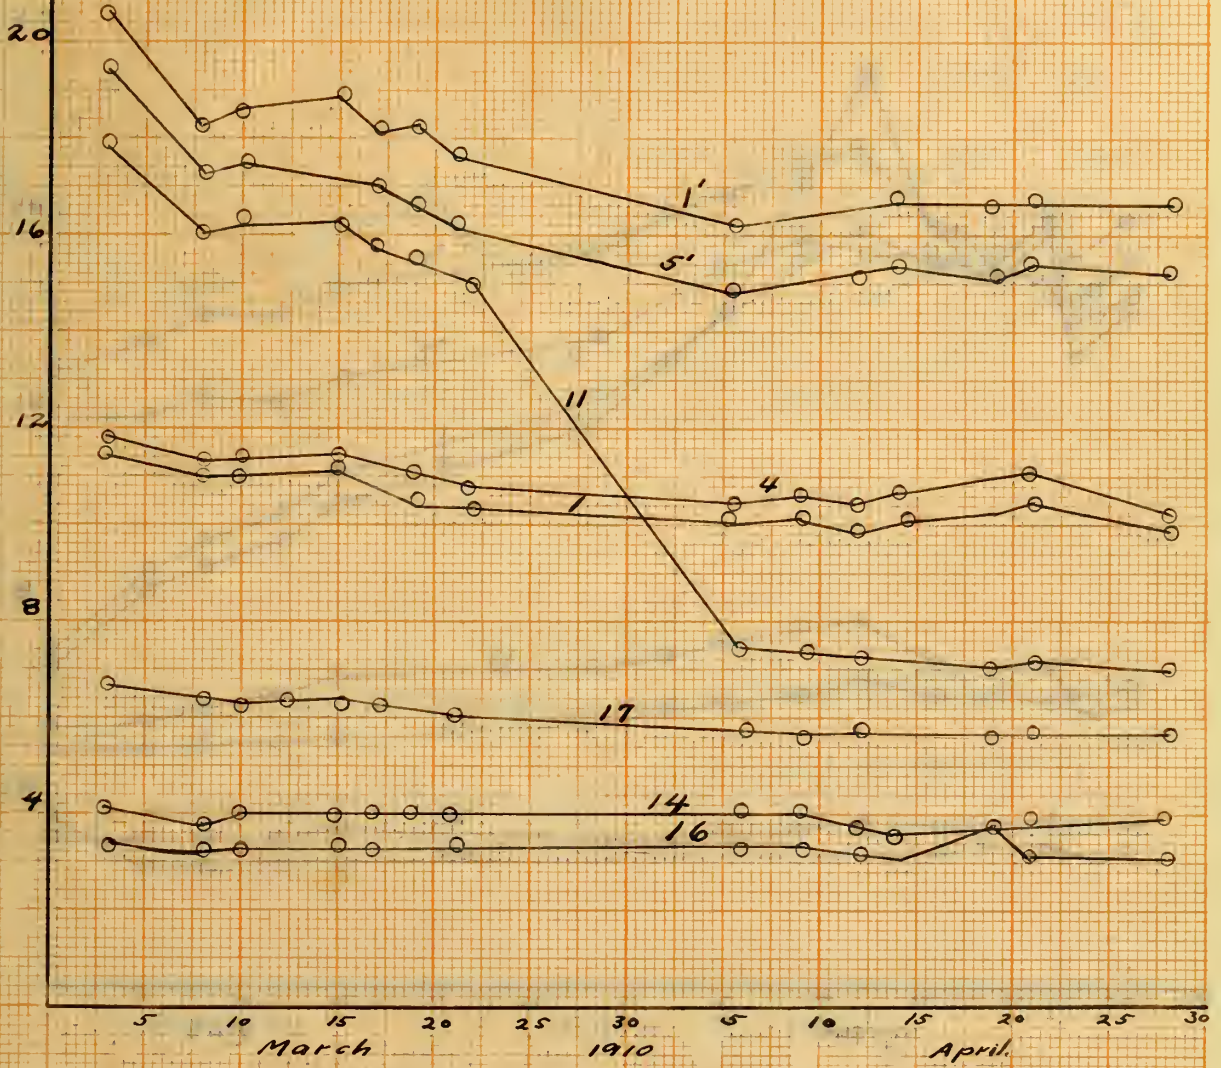 20
1'
16
5'
11
12
4
1
8
17
4
14
16
5 10 15 20 25 30 5 10 15 20 25 30
March 1910 April.